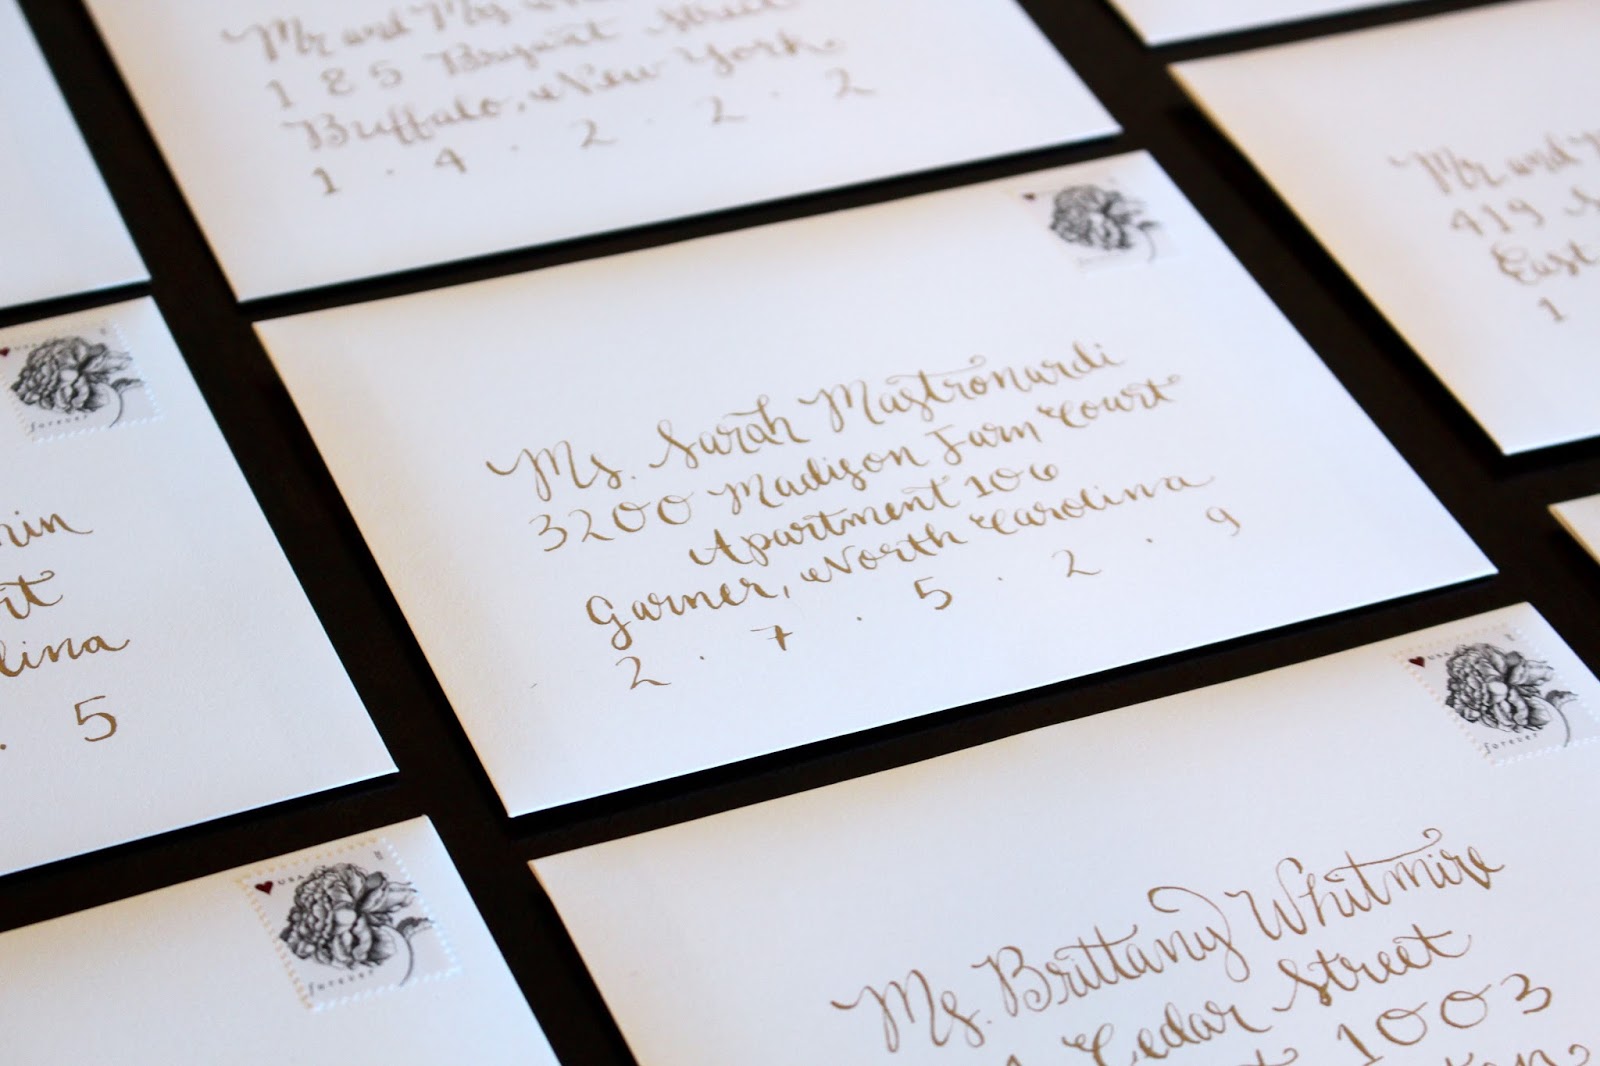 Mr and Mrs
185 Bryant Street
Buffalo, New York
1 · 4 · 2 · 2 · 2
Mr and
419
East
1
USA
forever
Ms. Sarah Mastronardi
3200 Madison Farm Court
Apartment 106
Garner, North Carolina
2 · 7 · 5 · 2 · 9
forever
min
rt
lina
· 5
USA
forever
Ms. Brittany Whitmire
Cedar Street
1003
USA
forever